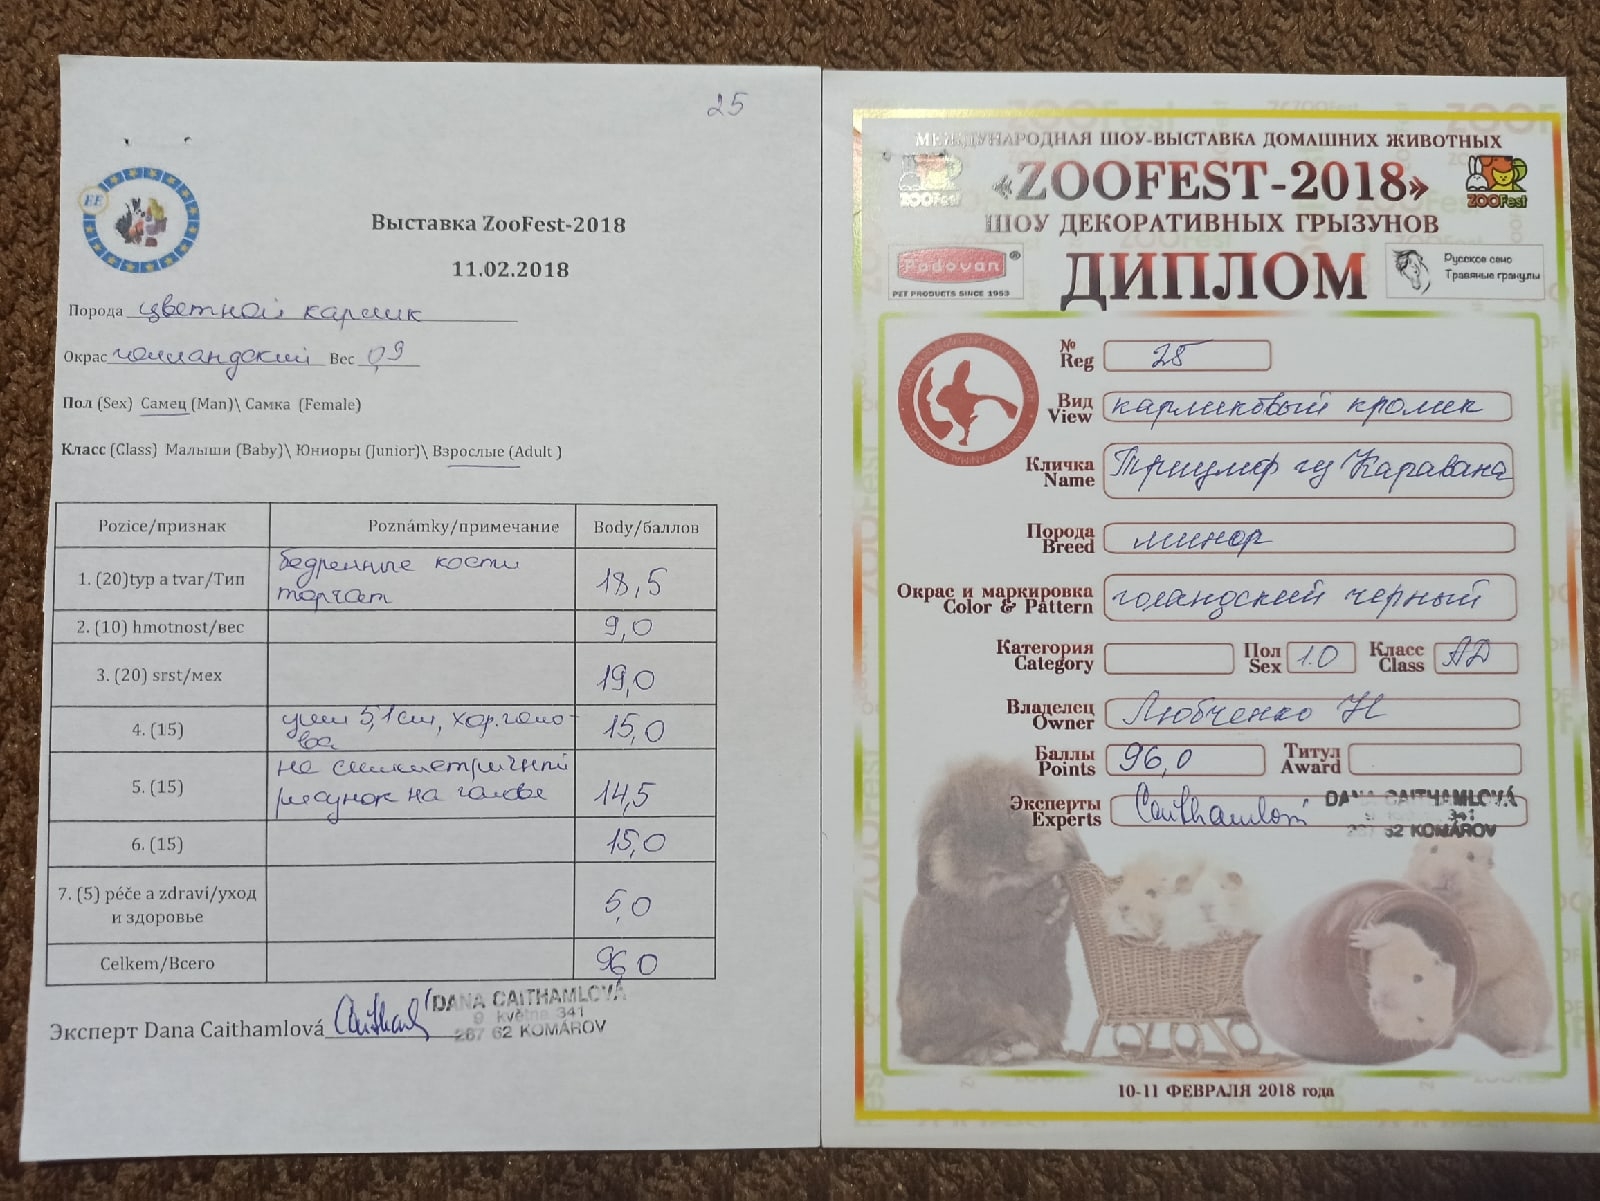 25
EE
Выставка ZooFest-2018
11.02.2018
Порода цветной карлик
Окрас голландский Вес 0,9
Пол (Sex) Самец (Man)\ Самка (Female)
Класс (Class) Малыши (Baby)\ Юниоры (Junior)\ Взрослые (Adult )
Pozice/признак Poznámky/примечание Body/баллов
1. (20)typ a tvar/Тип бедренные кости торчат 18,5
2. (10) hmotnost/вес 9,0
3. (20) srst/мех 19,0
4. (15) уши 5,1см, хор. голо-
ва 15,0
5. (15) не симметричный
рисунок на голове 14,5
6. (15) 15,0
7. (5) péče a zdravi/уход
и здоровье 5,0
Celkem/Всего 96,0
Эксперт Dana Caithamlová
DANA CAITHAMLOVÁ
9 května 341
267 62 KOMÁROV
МЕЖДУНАРОДНАЯ ШОУ-ВЫСТАВКА ДОМАШНИХ ЖИВОТНЫХ
«ZOOFEST-2018»
ZOOFest
ZOOFest
ШОУ ДЕКОРАТИВНЫХ ГРЫЗУНОВ
ДИПЛОМ
Padovan®
PET PRODUCTS SINCE 1953
Русское сено
Травяные гранулы
№
Reg 25
Вид
View карликовый кролик
Кличка
Name Триумф из Каравана
Порода
Breed минор
Окрас и маркировка
Color & Pattern голандский черный
Категория
Category
Пол
Sex 1.0
Класс
Class АД
Владелец
Owner Любченко Н
Баллы
Points 96,0
Титул
Award
Эксперты
Experts Caithamlová
DANA CAITHAMLOVÁ
341
267 62 KOMÁROV
10-11 ФЕВРАЛЯ 2018 года